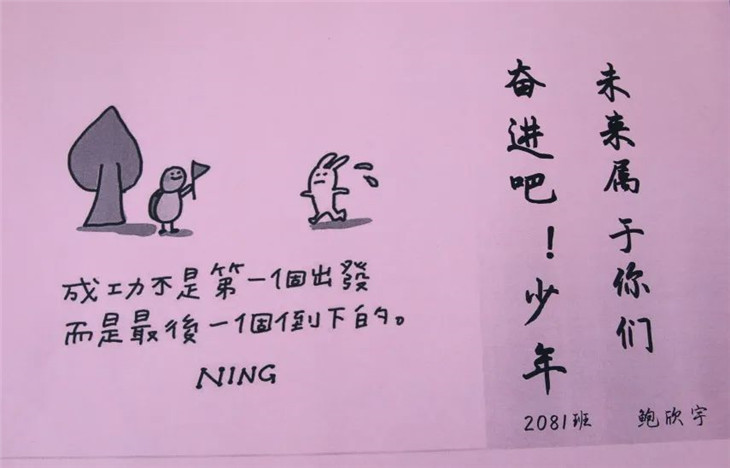 成功不是第一個出發
而是最後一個倒下的。
NING
未来属于你们
奋进吧！少年
2081班 鲍欣宇